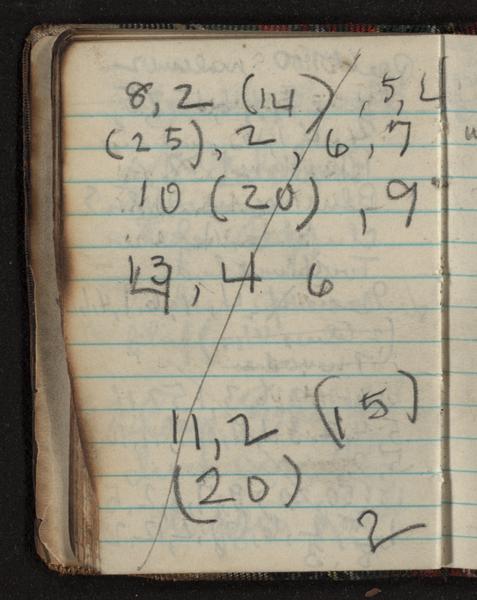 8, 2 (14), 5, 4
(25), 2, 6, 7
10 (20), 9
13, 4 6
11, 2 (15)
(20)
2